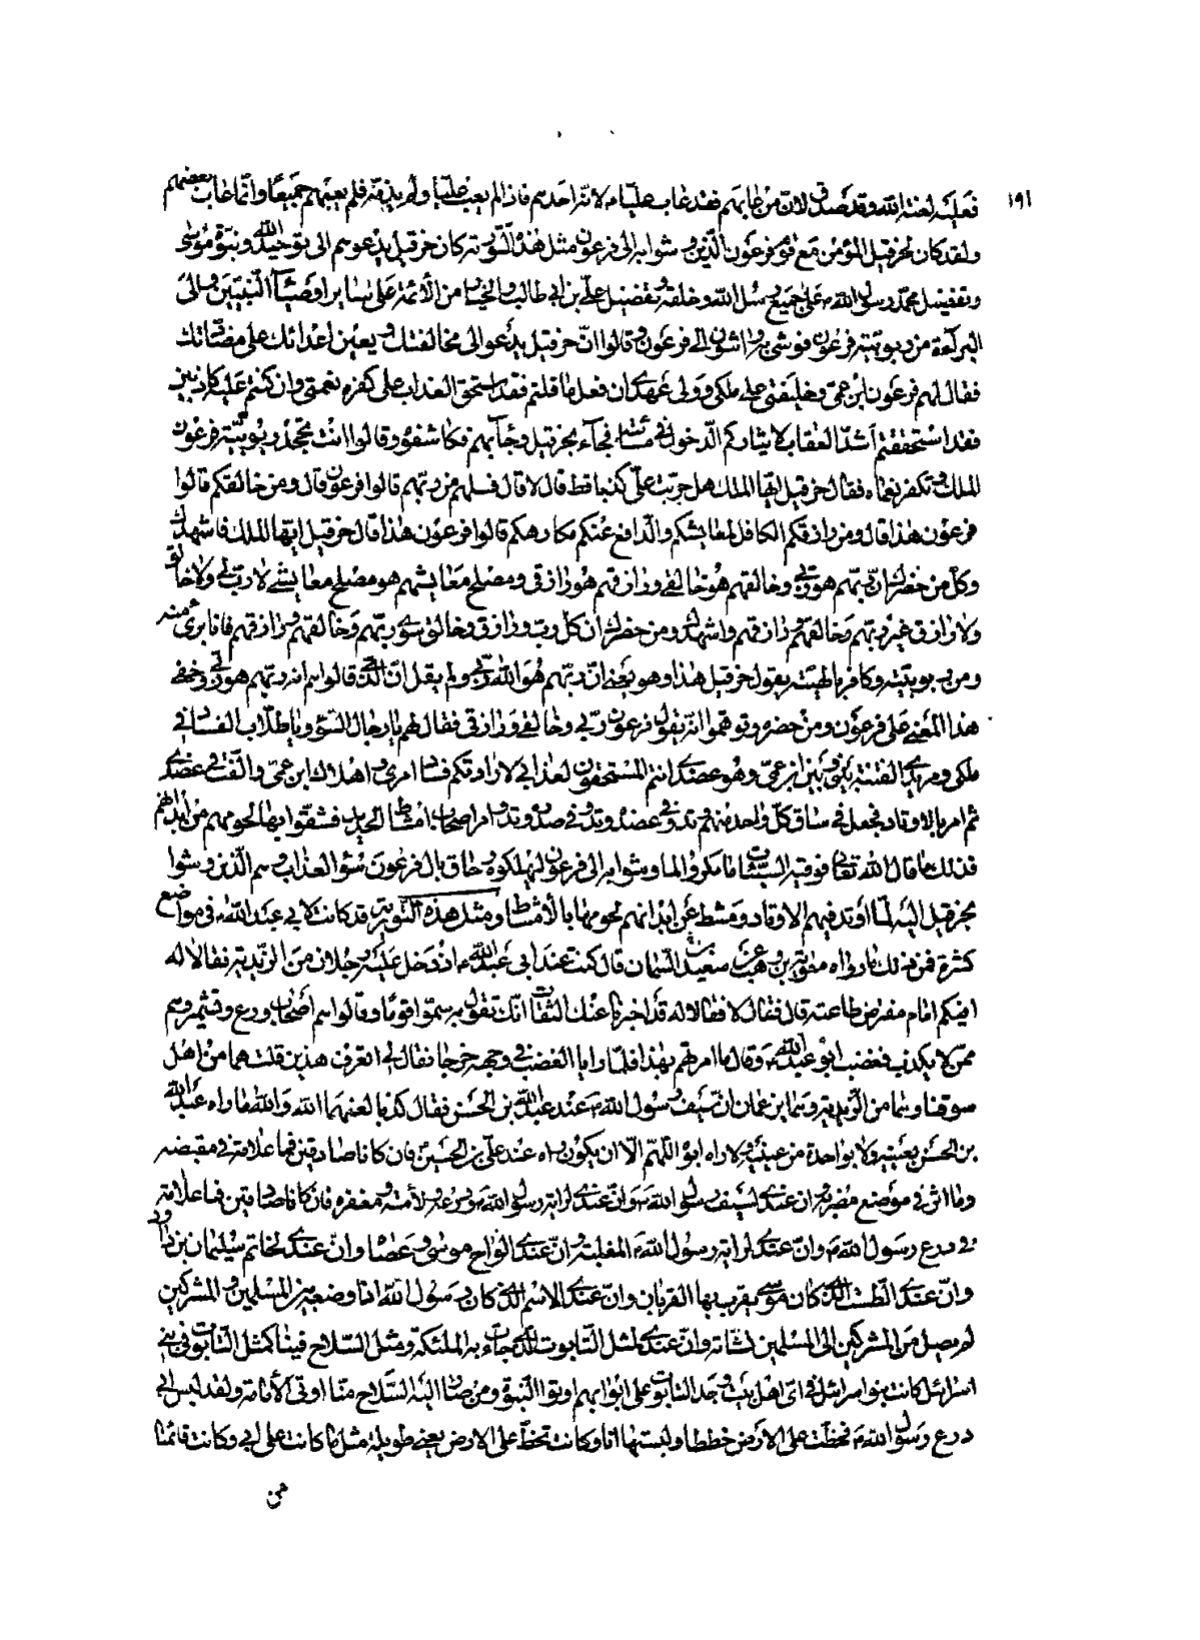 ١٩١
فعليه لعنة الله وقد صدق لان من عابهم فقد عاب عليا ء لانه احدهم فاذا لم يعب عليا ولم يذمه فلم يعبهم جميعا وانما عاب بعضهم
ولقد كان لحزقيل المؤمن مع قوم فرعون الذين وشوا به الى فرعون مثل هذه التورية كان حزقيل يدعوهم الى توحيد الله ونبوة موسى
وتفضيل محمد رسول الله ص على جميع رسل الله وخلقه وتفضيل علي بن ابي طالب والخيار من الائمة على سائر اوصياء النبيين والى
البراءة من ربوبية فرعون فوشى به واشون الى فرعون وقالوا ان حزقيل يدعو الى مخالفتك ويعين اعدائك على مضادتك
فقال لهم فرعون ابن عمي وخليفتي على ملكي وولي عهدي ان فعل ما قلتم فقد استحق العذاب على كفره نعمتي وان كنتم عليه كاذبين
فقد استحققتم اشد العقاب لايثاركم الدخول في مسائته فجاء بحزقيل وجاء بهم فكاشفوه وقالوا انت تجحد ربوبية فرعون
الملك وتكفر نعماءه فقال حزقيل ايها الملك هل جربت علي كذبا قط قال لا قال فسلهم من ربهم قالوا فرعون قال ومن خالقكم قالوا
فرعون هذا قال ومن رازقكم الكافل لمعايشكم والدافع عنكم مكارهكم قالوا فرعون هذا قال حزقيل ايها الملك فاشهدك
وكل من حضرك ان ربهم هو ربي وخالقهم هو خالقي ورازقهم هو رازقي ومصلح معايشهم هو مصلح معايشي لا رب لي ولا خالق
ولا رازق غير ربهم وخالقهم ورازقهم واشهدك ومن حضرك ان كل رب ورازق وخالق سوى ربهم وخالقهم ورازقهم فانا بريء منه
ومن ربوبيته وكافر بالهيته يقول حزقيل هذا وهو يعني ان ربهم هو الله ربي ولم يقل ان الذي قالوا هم انه ربهم هو ربي وخفي
هذا المعنى على فرعون ومن حضره وتوهموا انه يقول فرعون ربي وخالقي ورازقي فقال لهم يا رجال السوء ويا طلاب الفساد في
ملكي ومريدي الفتنة بيني وبين ابن عمي وهو عضدي انتم المستحقون لعذابي لارادتكم فساد امري واهلاك ابن عمي والفت في عضدي
ثم امر بالاوتاد فجعل في ساق كل واحد منهم وتد وفي عضده وتد وفي صدره وتد وامر اصحاب امشاط الحديد فشقوا بها لحومهم من ابدانهم
فذلك ما قال الله تعالى فوقيه الله سيئات ما مكروا لما وشوا به الى فرعون ليهلكوه وحاق بال فرعون سوء العذاب وهم الذين وشوا
بحزقيل اليه لما اوتد فيهم الاوتاد ومشط عن ابدانهم لحومها بالامشاط ومثل هذه التورية قد كانت لابي عبد الله ء في مواضع
كثيرة فمن ذلك ما رواه معوية بن وهب عن سعيد السمان قال كنت عند ابي عبد الله ء اذ دخل عليه رجلان من الزيدية فقالا له
افيكم امام مفترض طاعته قال فقال لا فقالا له قد اخبرنا عنك الثقات انك تقول به وسموا قوما وقالوا هم اصحاب ورع وتشمير وهم
ممن لا يكذب فغضب ابو عبد الله ء وقال ما امرتهم بهذا فلما رايا الغضب في وجهه خرجا فقال لي اتعرف هذين قلت هما من اهل
سوقنا وهما من الزيدية وهما يزعمان ان سيف رسول الله ص عند عبد الله بن الحسن فقال كذبا لعنهما الله والله ما راه عبد الله
بن الحسن بعينيه ولا بواحدة من عينيه ولا راه ابوه اللهم الا ان يكون راه عند علي بن الحسين فان كانا صادقين فما علامة في مقبضه
وما اثر في موضع مضربه وان عندي لسيف رسول الله ص وان عندي لراية رسول الله ص ودرعه ولامته ومغفره فان كانا صادقين فما علامة
في درع رسول الله ص وان عندي لراية رسول الله ص المغلبة وان عندي الواح موسى وعصاه وان عندي لخاتم سليمان بن داود
وان عندي الطست الذي كان موسى يقرب بها القربان وان عندي الاسم الذي كان رسول الله اذا وضعه بين المسلمين والمشركين
لم يصل من المشركين الى المسلمين نشابة وان عندي لمثل التابوت الذي جاءت به الملئكة ومثل السلاح فينا كمثل التابوت في بني
اسرائيل كانت بنو اسرائيل في اي اهل بيت وجد التابوت على ابوابهم اوتوا النبوة ومن صار اليه السلاح منا اوتي الامامة ولقد لبس ابي
درع رسول الله ص فخطت على الارض خططا ولبستها انا وكانت تخط على الارض يعني طويلة مثل ما كانت على ابي وكانت قائمنا
من